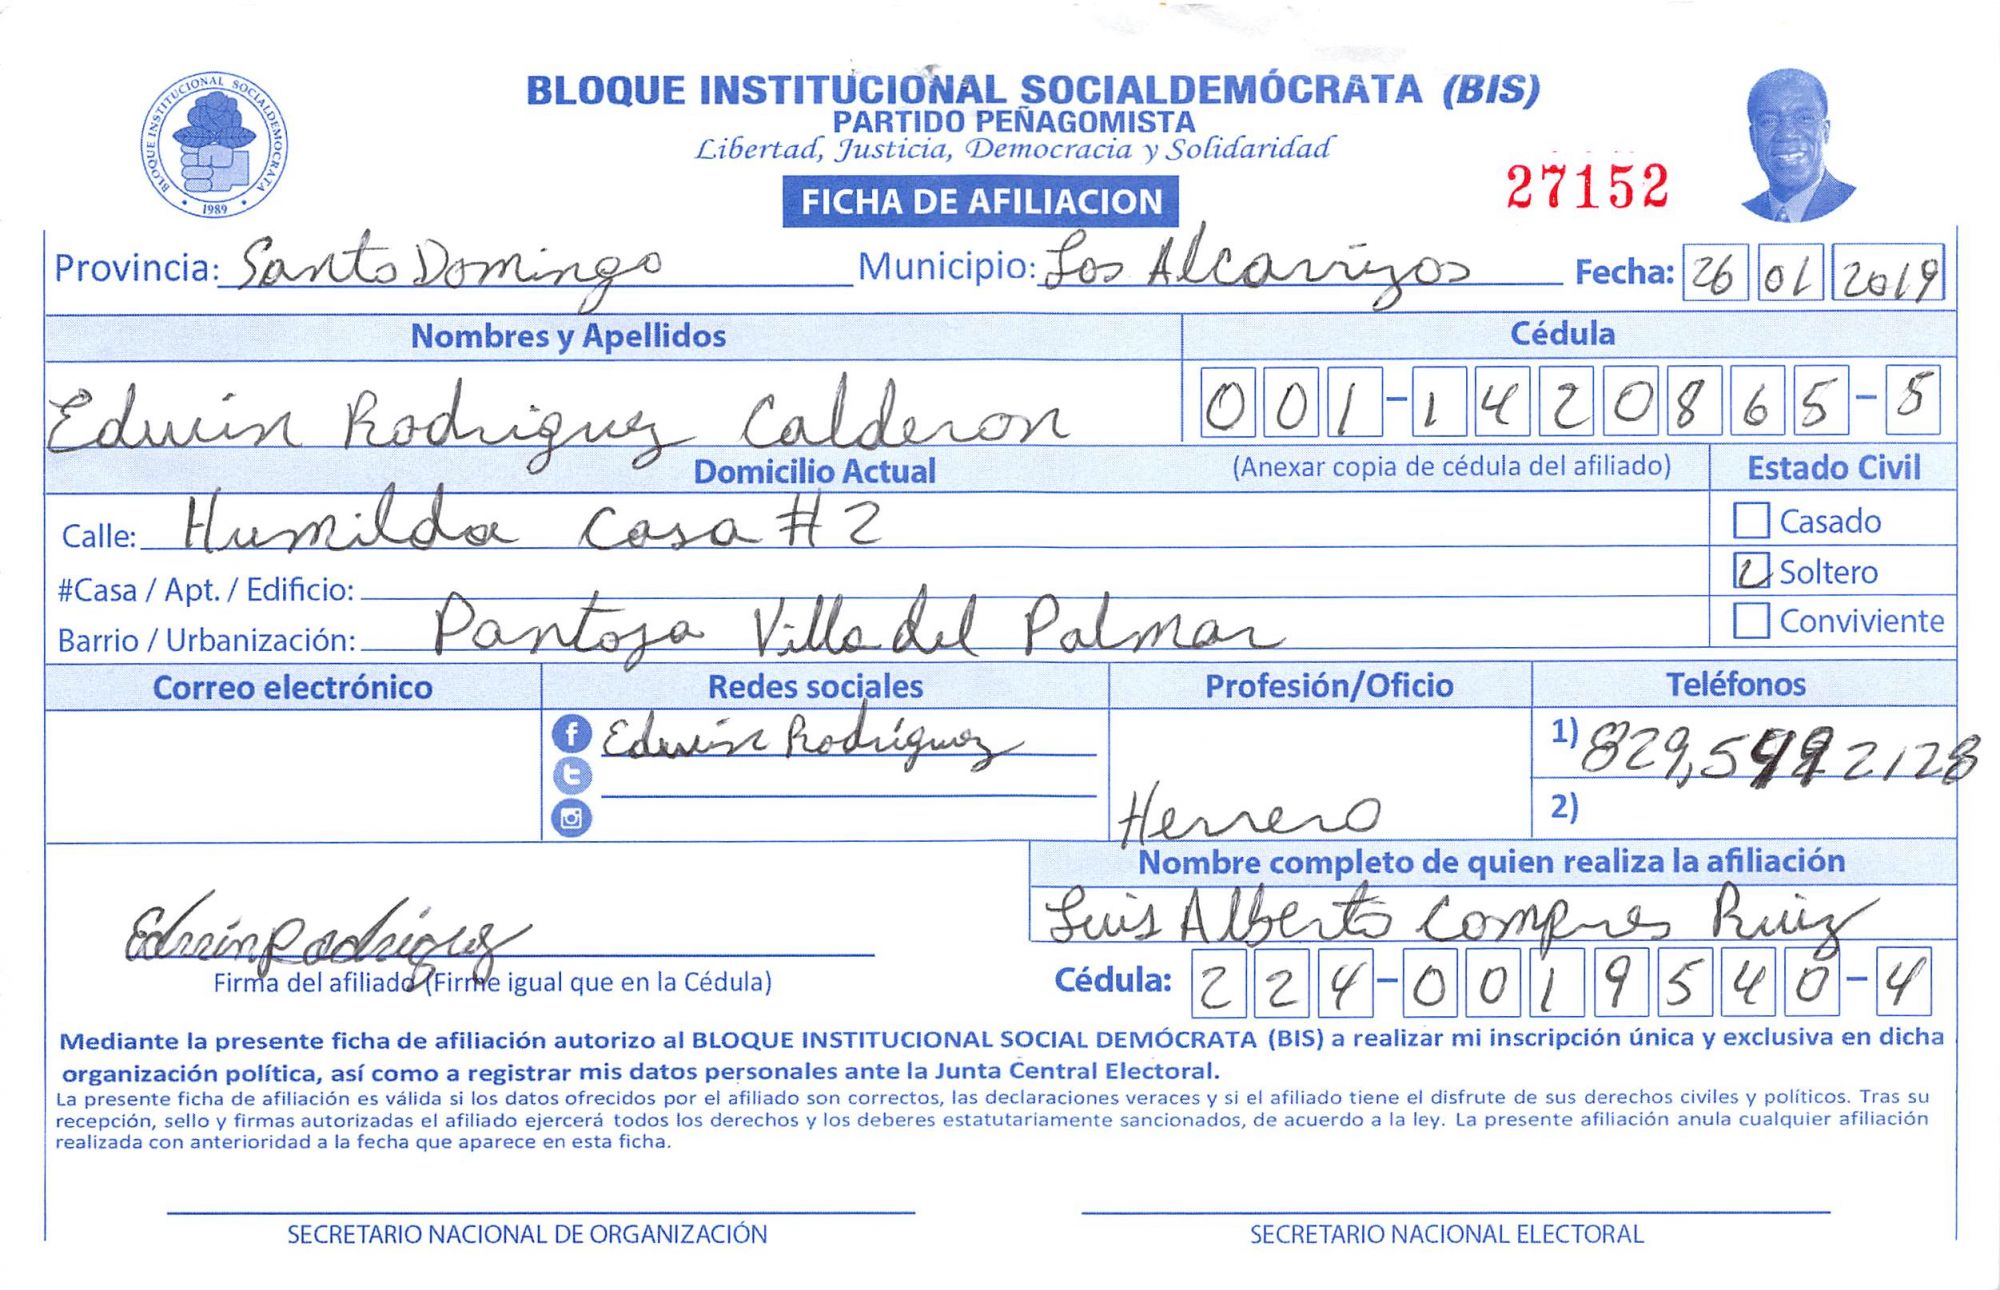 BLOQUE INSTITUCIONAL SOCIALDEMÓCRATA (BIS)
PARTIDO PEÑAGOMISTA
Libertad, Justicia, Democracia y Solidaridad
BLOQUE INSTITUCIONAL SOCIALDEMOCRATA
1989
27152
FICHA DE AFILIACION
Provincia: Santo Domingo Municipio: Los Alcarrizos Fecha: 26 01 2019
Nombres y Apellidos Cédula
Edwin Rodriguez Calderon 001-1420865-5
Domicilio Actual (Anexar copia de cédula del afiliado) Estado Civil
Calle: Humilda Casa #2 Casado
#Casa / Apt. / Edificio: Soltero
Barrio / Urbanización: Pantoja Villa del Palmar Conviviente
Correo electrónico Redes sociales Profesión/Oficio Teléfonos
Edwin Rodríguez 1) 829,
Herrero 2)
Nombre completo de quien realiza la afiliación
Luis Alberto Compres Ruiz
Edwin Rodriguez
Firma del afiliado (Firme igual que en la Cédula) Cédula: 224-0019540-4
Mediante la presente ficha de afiliación autorizo al BLOQUE INSTITUCIONAL SOCIAL DEMÓCRATA (BIS) a realizar mi inscripción única y exclusiva en dicha
organización política, así como a registrar mis datos personales ante la Junta Central Electoral.
La presente ficha de afiliación es válida si los datos ofrecidos por el afiliado son correctos, las declaraciones veraces y si el afiliado tiene el disfrute de sus derechos civiles y políticos. Tras su
recepción, sello y firmas autorizadas el afiliado ejercerá todos los derechos y los deberes estatutariamente sancionados, de acuerdo a la ley. La presente afiliación anula cualquier afiliación
realizada con anterioridad a la fecha que aparece en esta ficha.
SECRETARIO NACIONAL DE ORGANIZACIÓN SECRETARIO NACIONAL ELECTORAL